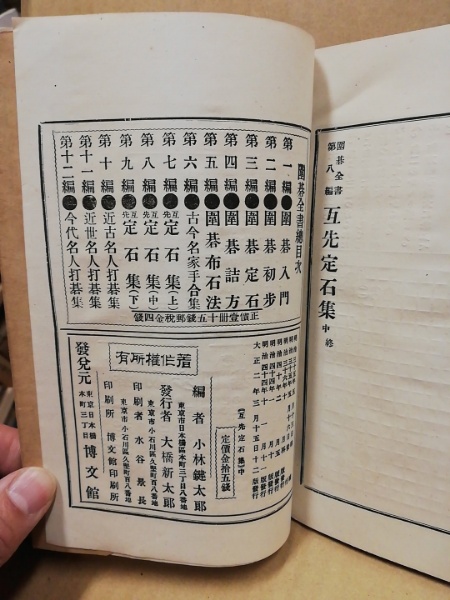 囲碁全書
第八編
互先定石集 中 終
圍碁全書總目次
第一編●圍碁入門
第二編●圍碁初步
第三編●圍碁定石
第四編●圍碁詰方
第五編●圍碁布石法
第六編●古今名家手合集
第七編●互先定石集(上)
第八編●互先定石集(中)
第九編●互先定石集(下)
第十編●近古名人打碁集
第十一編●近世名人打碁集
第十二編●今代名人打碁集
正價壹冊十五錢郵稅金四錢
大正二年三月十五日十二版發行
(互先定石集)中
定價金拾五錢
著作權所有
編者 小林鍵太郎
東京市日本橋區本町三丁目八番地
發行者 大橋新太郎
東京市小石川區久堅町百八番地
印刷者 水谷景長
東京市小石川區久堅町百八番地
印刷所 博文館印刷所
發兌元 東京日本橋本町三丁目 博文館